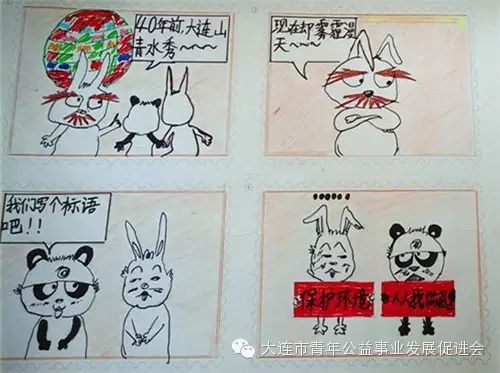 40年前,大连山
青水秀~~~~
现在却雾霾漫
天~~~~
我们写个标语
吧!!
④
保护环境
从我
大连市青年公益事业发展促进会